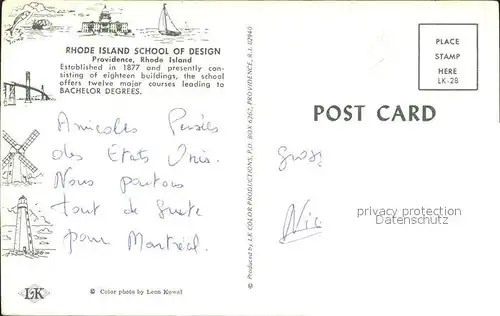 RHODE ISLAND SCHOOL OF DESIGN
Providence, Rhode Island
Established in 1877 and presently con-
sisting of eighteen buildings, the school
offers twelve major courses leading to
BACHELOR DEGREES.
Amicales Pensées
des Etats Unis.
Nous partons
tout de suite
pour Montréal.
LK
© Color photo by Leon Kowal
© Produced by LK COLOR PRODUCTIONS, P.O. BOX 6267, PROVIDENCE, R.I. 02940
PLACE
STAMP
HERE
LK-28
POST CARD
privacy protection
Datenschutz